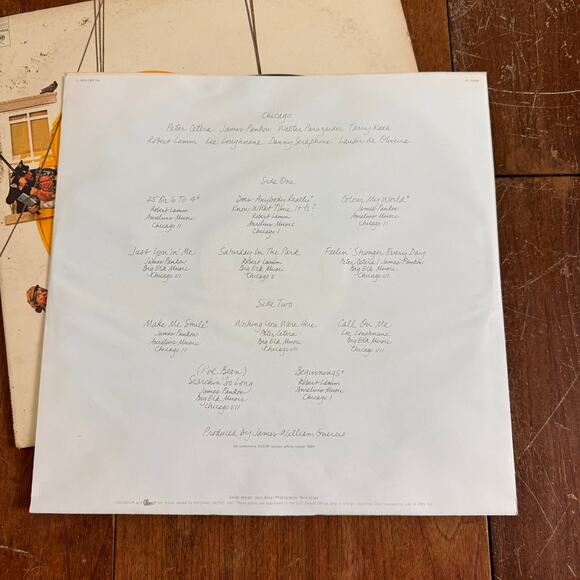 Chicago
Peter Cetera James Pankow Walter Parazaider Terry Kath
Robert Lamm Lee Loughnane Danny Seraphine Laudir de Oliveira
Side One
25 Or 6 To 4*
Robert Lamm
Aurelius Music
Chicago II
Does Anybody Really*
Know What Time It Is?
Robert Lamm
Aurelius Music
Chicago I
Colour My World*
James Pankow
Aurelius Music
Chicago II
Just You 'n' Me
James Pankow
Big Elk Music
Chicago VI
Saturday In The Park
Robert Lamm
Big Elk Music
Chicago V
Feelin' Stronger Every Day
Peter Cetera / James Pankow
Big Elk Music
Chicago VI
Side Two
Make Me Smile*
James Pankow
Aurelius Music
Chicago II
Wishing You Were Here
Peter Cetera
Big Elk Music
Chicago VII
Call On Me
Lee Loughnane
Big Elk Music
Chicago VII
(I've Been)
Searchin' So Long
James Pankow
Big Elk Music
Chicago VII
Beginnings*
Robert Lamm
Aurelius Music
Chicago I
Produced by James William Guercio